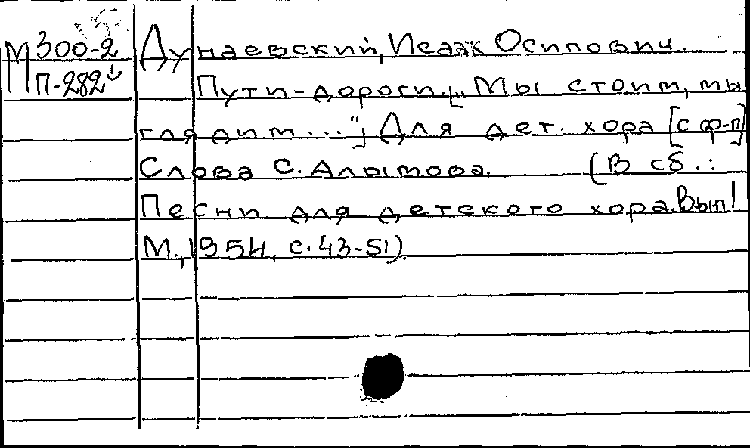 М300-2
П-282
Дунаевский, Исаак Осипович.
Пути-дороги. ["Мы стоим, мы
глядим..."] Для дет. хора [с ф-п]
Слова С. Алымова. (В сб.:
Песни для детского хора. Вып 1
М., 1954, с. 43-51).